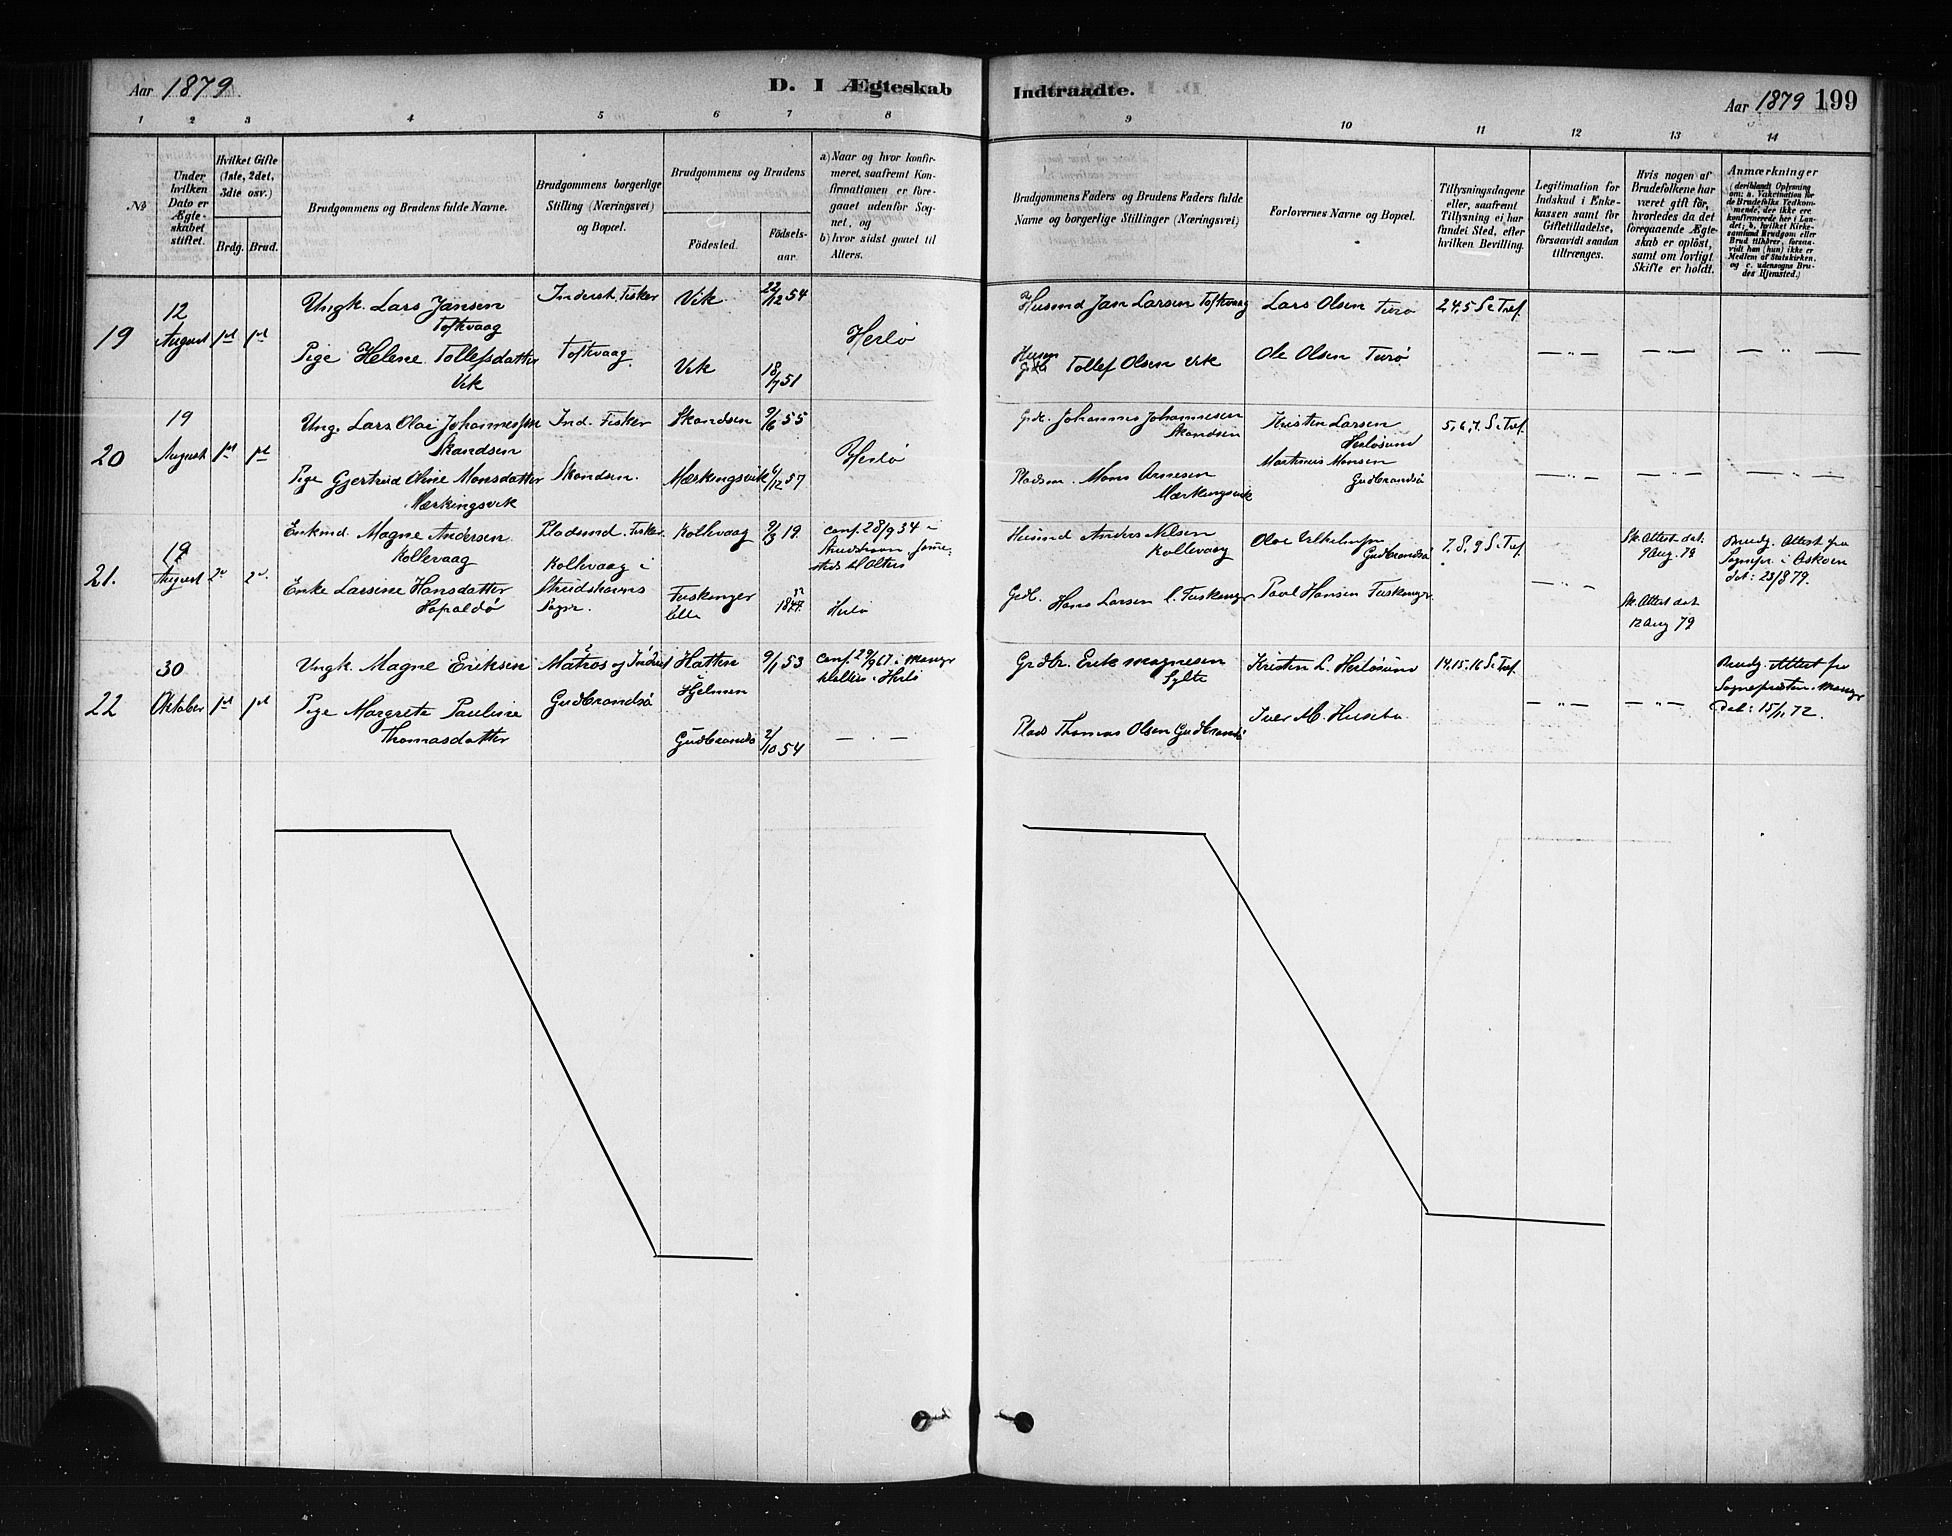 Aar 1879
D. I Ægteskab
Indtraadte.
Aar 1879 199
1 2 3 4 5 6 7 8
9 10 11 12 13 14
№
Under hvilken Dato er Ægteskabet stiftet.
Hvilket Gifte (1ste, 2det, 3die osv.)
Brdg. Brud.
Brudgommens og Brudens fulde Navne.
Brudgommens borgerlige Stilling (Næringsvei) og Bopæl.
Brudgommens og Brudens
Födested.
Födselsaar.
a) Naar og hvor konfirmeret, saafremt Konfirmationen er foregaaet udenfor Sognet, og
b) hvor sidst gaaet til Alters.
Brudgommens Faders og Brudens Faders fulde Navne og borgerlige Stillinger (Næringsvei)
Forlovernes Navne og Bopæl.
Tillysningsdagene eller, saafremt Tillysning ei har fundet Sted, efter hvilken Bevilling.
Legitimation for Indskud i Enkekassen samt for Giftetilladelse, forsaavidt saadan tiltrænges.
Hvis nogen af Brudefolkene har været gift för, hvorledes da det foregaaende Ægteskab er oplöst, samt om lovligt Skifte er holdt.
Anmærkninger
(deriblandt Oplysning om: a. Vakcination for de Brudefolks Vedkommende, der ikke ere konfirmerede her i Landet; b. hvilket Kirkesamfund Brudgom eller Brud tilhörer, forsaavidt han (hun) ikke er Medlem af Statskirken, og c. udensogns Brudes Hjemsted.)
19
12 August 1st 1st
Ungk. Lars Jansen
Toftevaag
Inderst. Fisker
Toftevaag.
Vik 22/12 54
Herlö
Husmd Jan Larsen Toftevaag
Lars Olsen Turö
2,4,5 S e Tref.
Pige Helene Tollefsdatter
Vik
Vik 18/7 51
Tollef Olsen Vik
Ole Olsen Turö
— „ — — „ — — „ —
20
19 August 1st 1st
Ung. Lars Olai Johannessen
Skandsen
Ind. Fisker
Skandsen.
Skandsen 9/6 55
Herlö
Grdb. Johannes Johannesen
Skandsen
Kristen Larsen
Herlösund
5, 6, 7. S e Tref.
Pige Gjertrud Oline Monsdatter
Mærkingsvik
Mærkingsvik 6/12 57
Pladsm. Mons Arnesen
Mærkingsvik
Martinus Monsen
Gudbrandsö
— „ — — „ — — „ —
21.
19 August 2et 2et
Enkmd. Magne Andersen
Kollevaag
Pladsmd. Fisker
Kollevaag i
Strudshavns
Sogn.
Kollevaag 9/3 19
conf. 28/9 34 i
Strudshavn
Husmd Anders Nilsen
Kollevaag
Gudbrandsö
7. 8. 9 S e Tref.
Sk. Attest dat.
9 Aug. 79
Brudg. Attest fra
Sognepr. i Askøen
dat: 23/8 79.
Enke Larsine Hansdatter
Hopaldö
Fuskenger
lille
Herlö
Grdb. Hans Larsen l. Fuskenger
Paul Hansen Fuskenger
— „ —
Sk. Attest dat
12 Aug 79
22
30 Oktober 1st 1st
Ungk. Magne Eriksen
Matros og Inderst
Gudbrandsö
Hatten
Hjelmen
9/1 53
conf. 29/9 67 i Manger
d. Alters i Herlö
Grdbr. Erik Magnesen
Sylte
Kristen L. Herlösund
14. 15. 16 S e Tref.
Brudg. Attest fra
Sognepresten i Manger
dat: 15/11 72.
Pige Margrete Pauline
Thomasdatter
Gudbrandsö 2/10 54
— „ —
Plads Thomas Olsen Gudbrandsö
Iver M. Husebø
— „ — — „ —